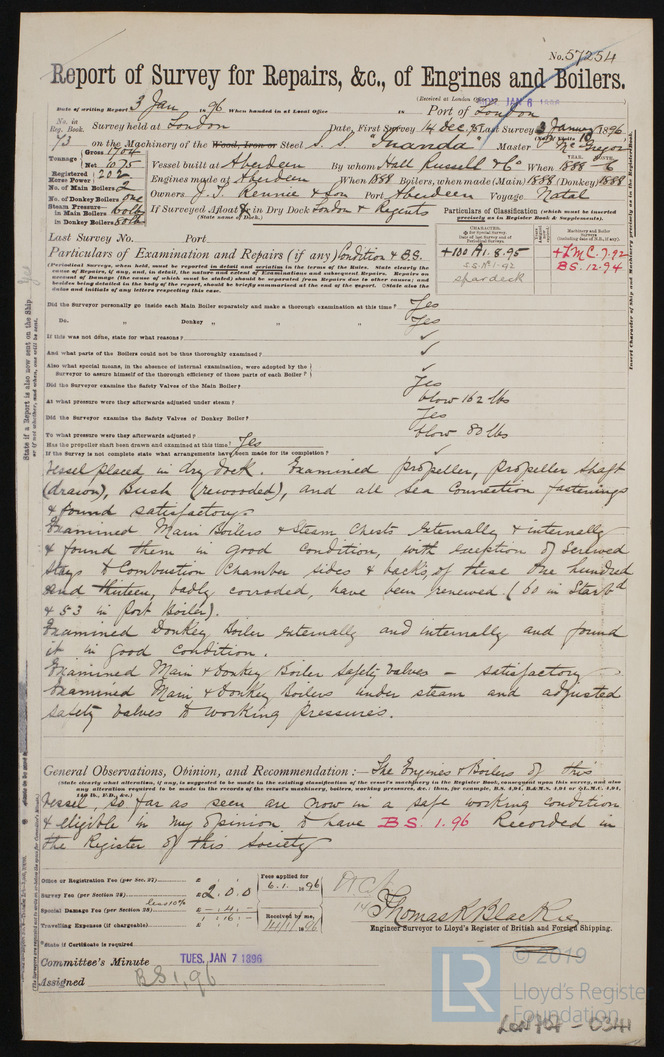 No. 57254
Report of Survey for Repairs, &c., of Engines and Boilers.
(Received at London Office MON. JAN 6 1896
Date of writing Report 3 Jan 1896 When handed in at Local Office 18 Port of London
No. in Reg. Book. 73 Survey held at London Date, First Survey 14 Dec. 95 Last Survey 3 January 1896
on the Machinery of the Wood, Iron or Steel S. S. "Inanda" Master McGregor
Tonnage Gross Net 1075
Vessel built at Aberdeen By whom Hall Russell & Co When 1888 6
YEAR. MONTH.
Registered Horse Power 202
Engines made at Aberdeen When 1888 Boilers, when made (Main) 1888 (Donkey) 1888
No. of Main Boilers 2
Owners J. T. Rennie & Son Port Aberdeen Voyage Natal
No. of Donkey Boilers one
Steam Pressure in Main Boilers 160 lbs
in Donkey Boilers 80 lbs
If Surveyed Afloat or in Dry Dock London & Regents
(State name of Dock.)
Particulars of Classification (which must be inserted precisely as in Register Book & Supplements).
Last Survey No. Port
Particulars of Examination and Repairs (if any) Condition & B.S.
+100 A1. 8.95
S.S. No 1-92
spardeck
+LMC. 7.92
B.S. 12.94
Did the Surveyor personally go inside each Main Boiler separately and make a thorough examination at this time? Yes
Do. " Donkey " " " Yes
If this was not done, state for what reasons?
And what parts of the Boilers could not be thus thoroughly examined?
Also what special means, in the absence of internal examination, were adopted by the Surveyor to assure himself of the thorough efficiency of those parts of each Boiler?
Did the Surveyor examine the Safety Valves of the Main Boiler? Yes
At what pressure were they afterwards adjusted under steam? blow 162 lbs
Did the Surveyor examine the Safety Valves of Donkey Boiler? Yes
To what pressure were they afterwards adjusted? blow 80 lbs
Has the propeller shaft been drawn and examined at this time? Yes
If the Survey is not complete state what arrangements have been made for its completion?
Vessel placed in dry dock. Examined propeller, propeller shaft
(drawn), Bush (rewooded), and all sea connection fastenings
& found satisfactory.
Examined Main Boilers & Steam Chests externally & internally
& found them in good condition, with exception of screwed
stays to Combustion Chamber sides & backs, of these one hundred
and thirteen, badly corroded, have been renewed (60 in Starbd
& 53 in Port Boiler).
Examined Donkey Boiler externally and internally and found
it in good condition.
Examined Main & Donkey Boiler Safety Valves – satisfactory
Examined Main & Donkey Boilers under steam and adjusted
safety valves to working pressures.
General Observations, Opinion, and Recommendation:— The Engines & Boilers of this
(State clearly what alteration, if any, is suggested to be made in the existing classification of the vessel's machinery in the Register Book, consequent upon this survey, and also
any alteration required to be made in the records of the vessel's machinery, boilers, working pressures, &c.: thus, for example, B.S. 4,91, B.&M.S. 4,91 or +L.M.C. 4,91,
140 lb., F.D., &c.)
Vessel, so far as seen are now in a safe working condition
& eligible in my opinion to have B.S. 1.96 Recorded in
the Register of this Society
Office or Registration Fee (per Sec. 27) £
Survey Fee (per Section 28) £ 2.0.0
less 10%
Special Damage Fee (per Section 28) £ – .4. –
1.16. –
Travelling Expenses (if chargeable) £
Fees applied for 6.1.1896
Received by me, 14/1/1896
Thomas R Blackie
Engineer Surveyor to Lloyd's Register of British and Foreign Shipping.
*State if Certificate is required
Committee's Minute TUES. JAN 7 1896
Assigned BS 1,96
LR
© 2019
Lloyd's Register
Foundation
LON704-0341